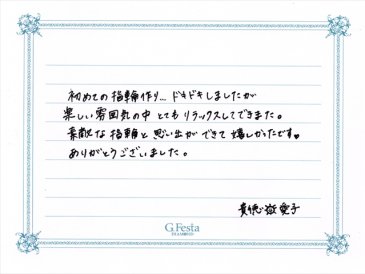 初めての指輪作り… ドキドキしましたが
楽しい雰囲気の中とてもリラックスしてできました。
素敵な指輪と思い出ができて嬉しかったです♥
ありがとうございました。
愛子
G.Festa